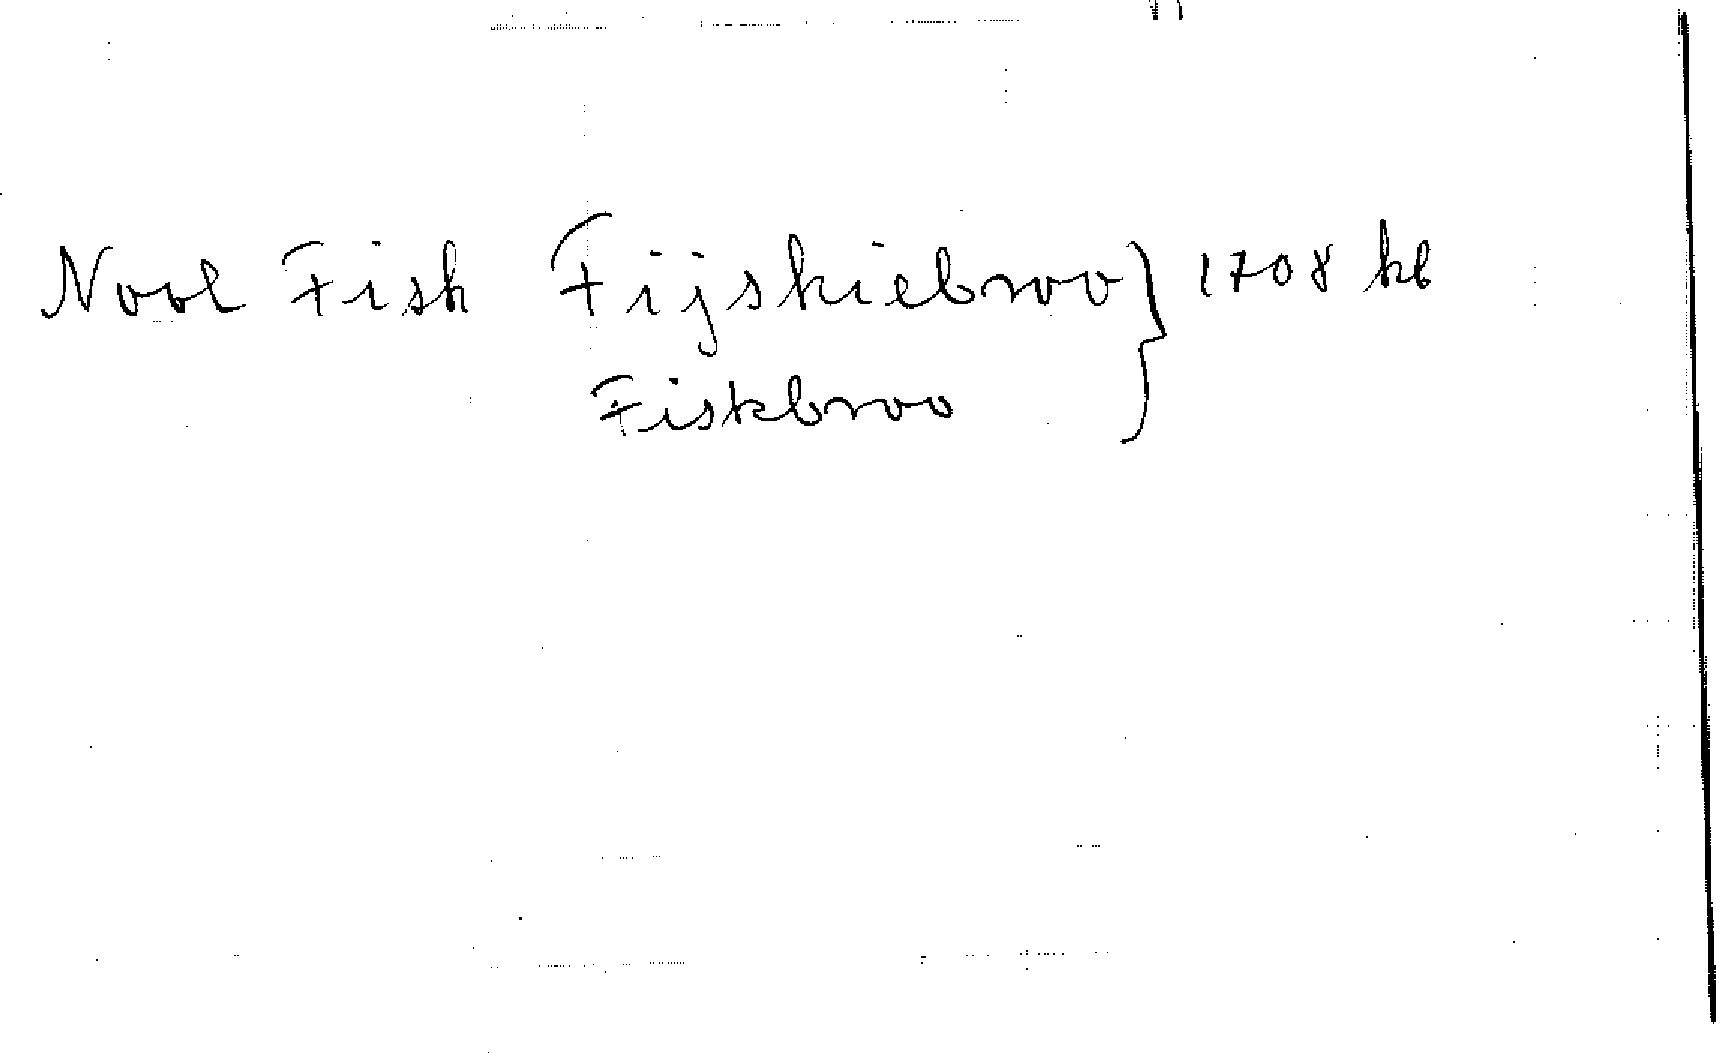 Nool Fish Fijskiebroo } 1708 kb
Fiskbroo